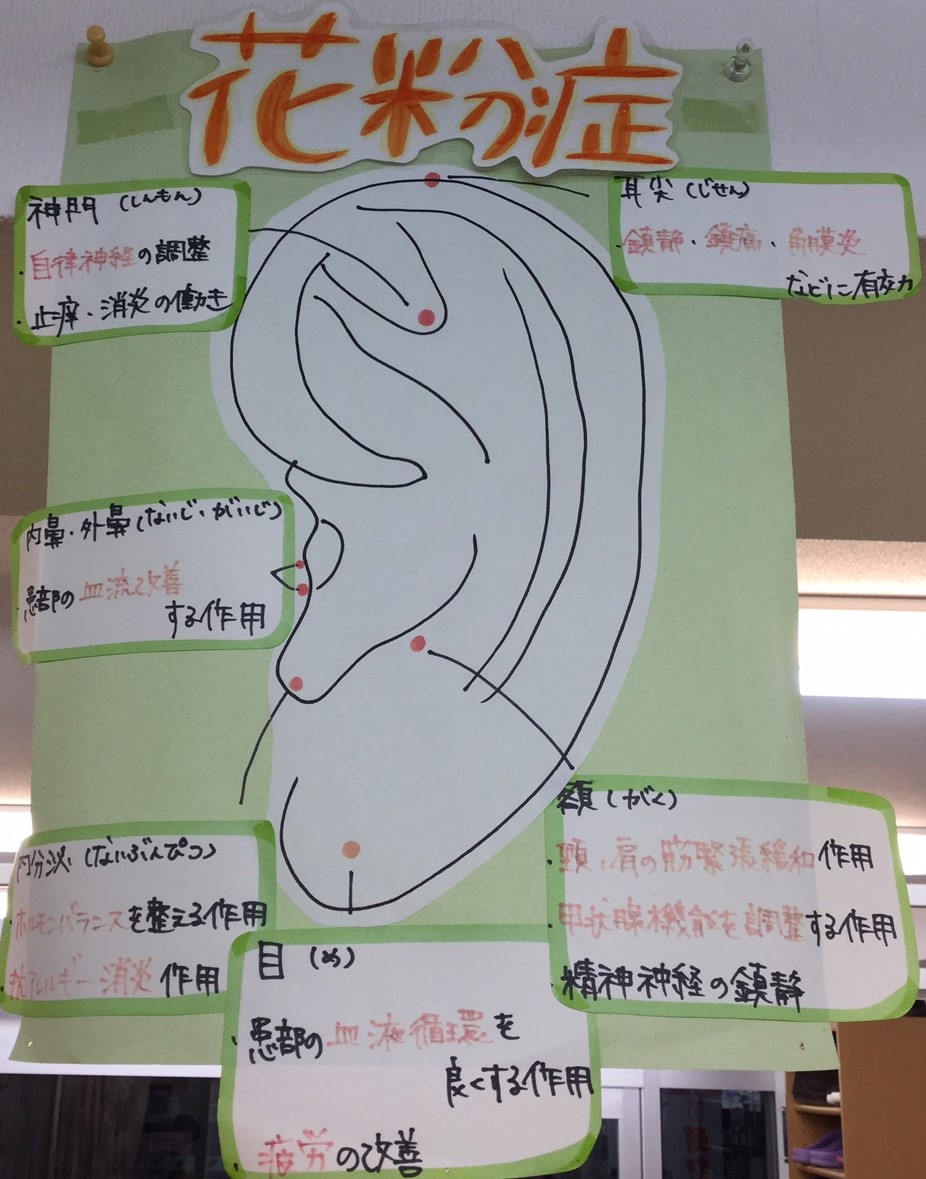 花粉症
神門 (しんもん)
・自律神経の調整
・止痒・消炎の働き
耳尖 (じせん)
・鎮静・鎮痛・角膜炎
などに有効
内鼻・外鼻(ないじ・がいじ)
・患部の血流改善
する作用
内分泌 (ないぶんぴつ)
・ホルモンバランスを整える作用
・抗アレルギー消炎作用
額 (がく)
・頸・肩の筋緊張緩和作用
・甲状腺機能を調整する作用
・精神神経の鎮静
目 (め)
・患部の血液循環を
良くする作用
・疲労の改善